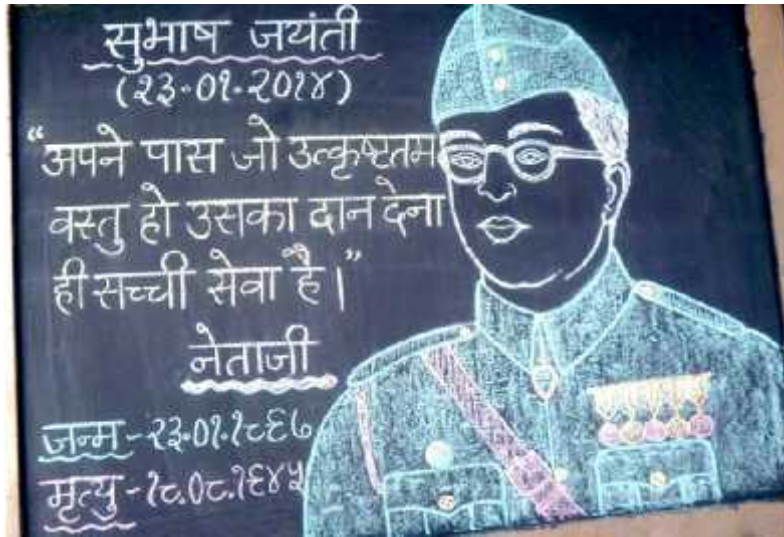 सुभाष जयंती
(२३-०१-२०१४)
“अपने पास जो उत्कृष्टतम
वस्तु हो उसका दान देना
ही सच्ची सेवा है।”
नेताजी
जन्म - २३.०१.१८९७
मृत्यु - १८.०८.१९४५